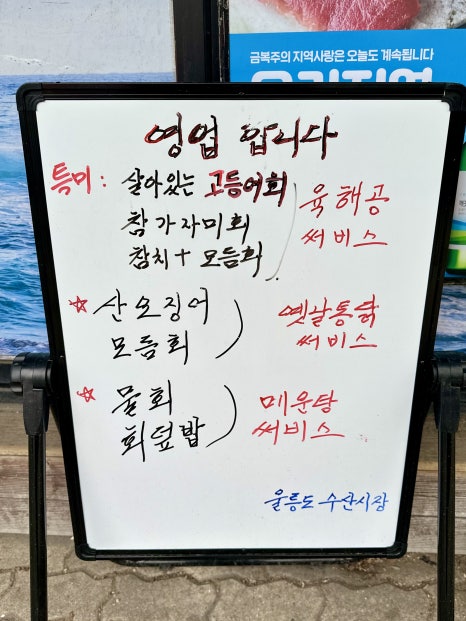 금복주의 지역사랑은 오늘도 계속됩니다
우리지역
영업 합니다
특미: 살아있는 고등어회
참가자미회
참치+모듬회
육해공
써비스
☆ 산오징어
모듬회
옛날통닭
써비스
☆ 물회
회덮밥
메운탕
써비스
울릉도 수산시장